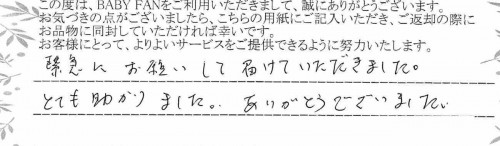 この度は、BABY FANをご利用いただきまして、誠にありがとうございます。
お気づきの点がございましたら、こちらの用紙にご記入いただき、ご返却の際に
お品物に同封していただければ幸いです。
お客様にとって、よりよいサービスをご提供できるように努力いたします。
緊急に お願いして 届けていただきました。
とても助かりました。ありがとうございました。